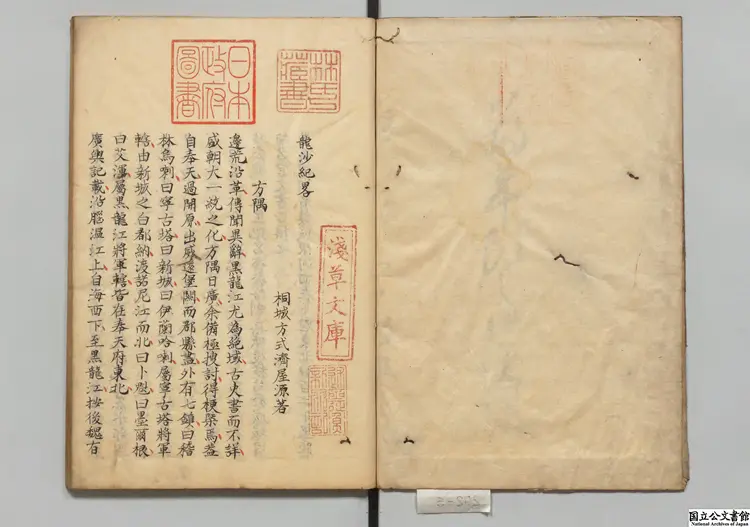 龍沙紀畧
桐城方式濟屋源著
方隅
邊荒沿革傳聞異辭黑龍江尤為絕域古史書而不詳
盛朝大一統之化方隅日廣余備極搜討得梗槩焉蓋
自奉天過開原出威遠堡關而郡縣盡外有七鎮曰稽
林烏喇曰寧古塔曰新城曰伊蘭哈喇屬寧古塔將軍
轄由新城之白都納渡諾尼江而北曰卜魁曰墨爾根
曰艾渾屬黑龍江將軍轄皆在奉天府東北
廣輿記載沿腦溫江上自海西下至黑龍江按後魏有
日本
政府
圖書
林氏
藏書
淺草文庫
国立公文書館
National Archives of Japan